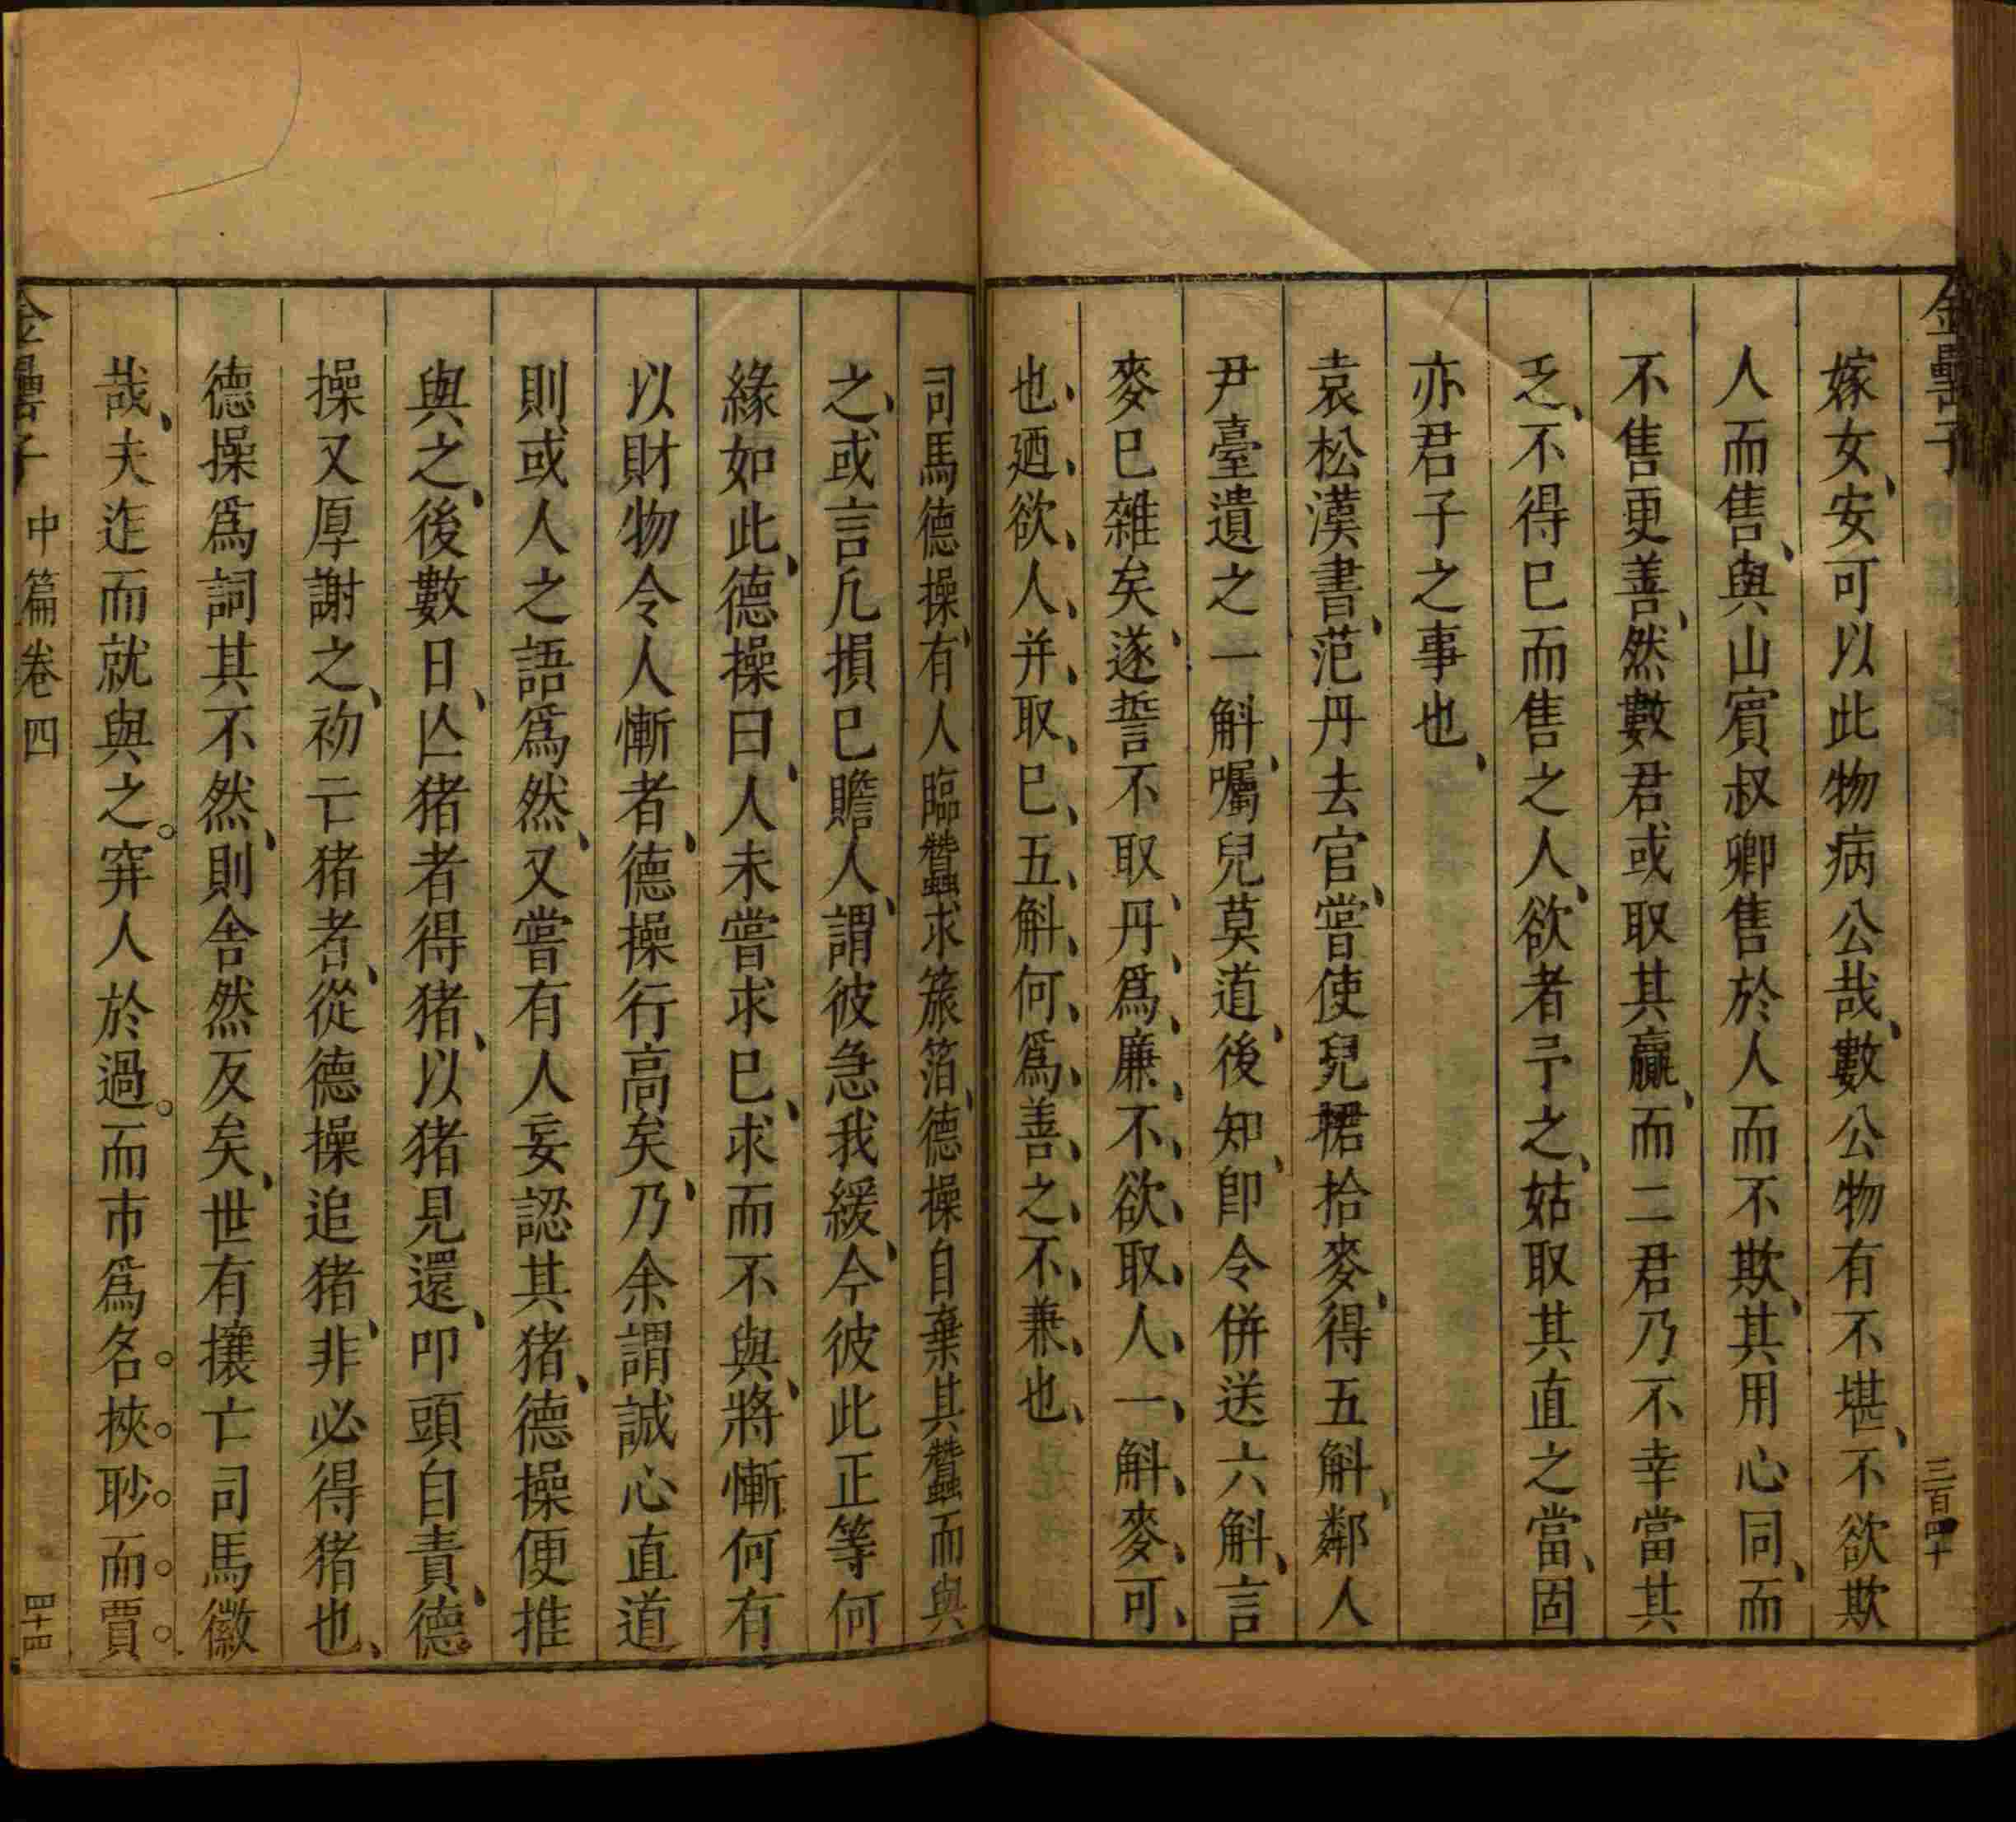 金罍子
三百四十
嫁女、安可以此物病公哉、數公物有不堪、不欲欺
人而售、與山賔叔卿售於人而不欺、其用心同、而
不售更善、然數君或取其贏、而二君乃不幸當其
乏、不得巳而售之人、欲者予之、姑取其直之當、固
亦君子之事也、
袁松漢書、范丹去官、嘗使兒捃拾麥、得五斛、鄰人
尹臺遺之一斛、囑兒莫道、後知、卽令併送六斛、言
麥巳雜矣、遂誓不取、丹、爲、廉、不、欲、取、人、一、斛、麥、可、
也、廼、欲、人、并、取、巳、五、斛、何、爲、善、之、不、兼、也、
司馬德操、有人臨蠶求簇箔、德操自棄其蠶而與
之、或言凡損巳贍人、謂彼急我緩、今彼此正等何
緣如此、德操曰、人未嘗求巳、求而不與、將慚何有
以財物令人慚者、德操行高矣、乃余謂誠心直道
則或人之語爲然、又嘗有人妄認其猪、德操便推
與之、後數日、亾猪者得猪、以猪見還、叩頭自責、德
操又厚謝之、初亡猪者、從德操追猪、非必得猪也、
德操爲詞其不然、則舍然反矣、世有攘亡司馬徽
哉、夫迯而就與之。穽人於過。而市爲名。挾。眇。而。賈。
金罍子 中篇卷四 四十四